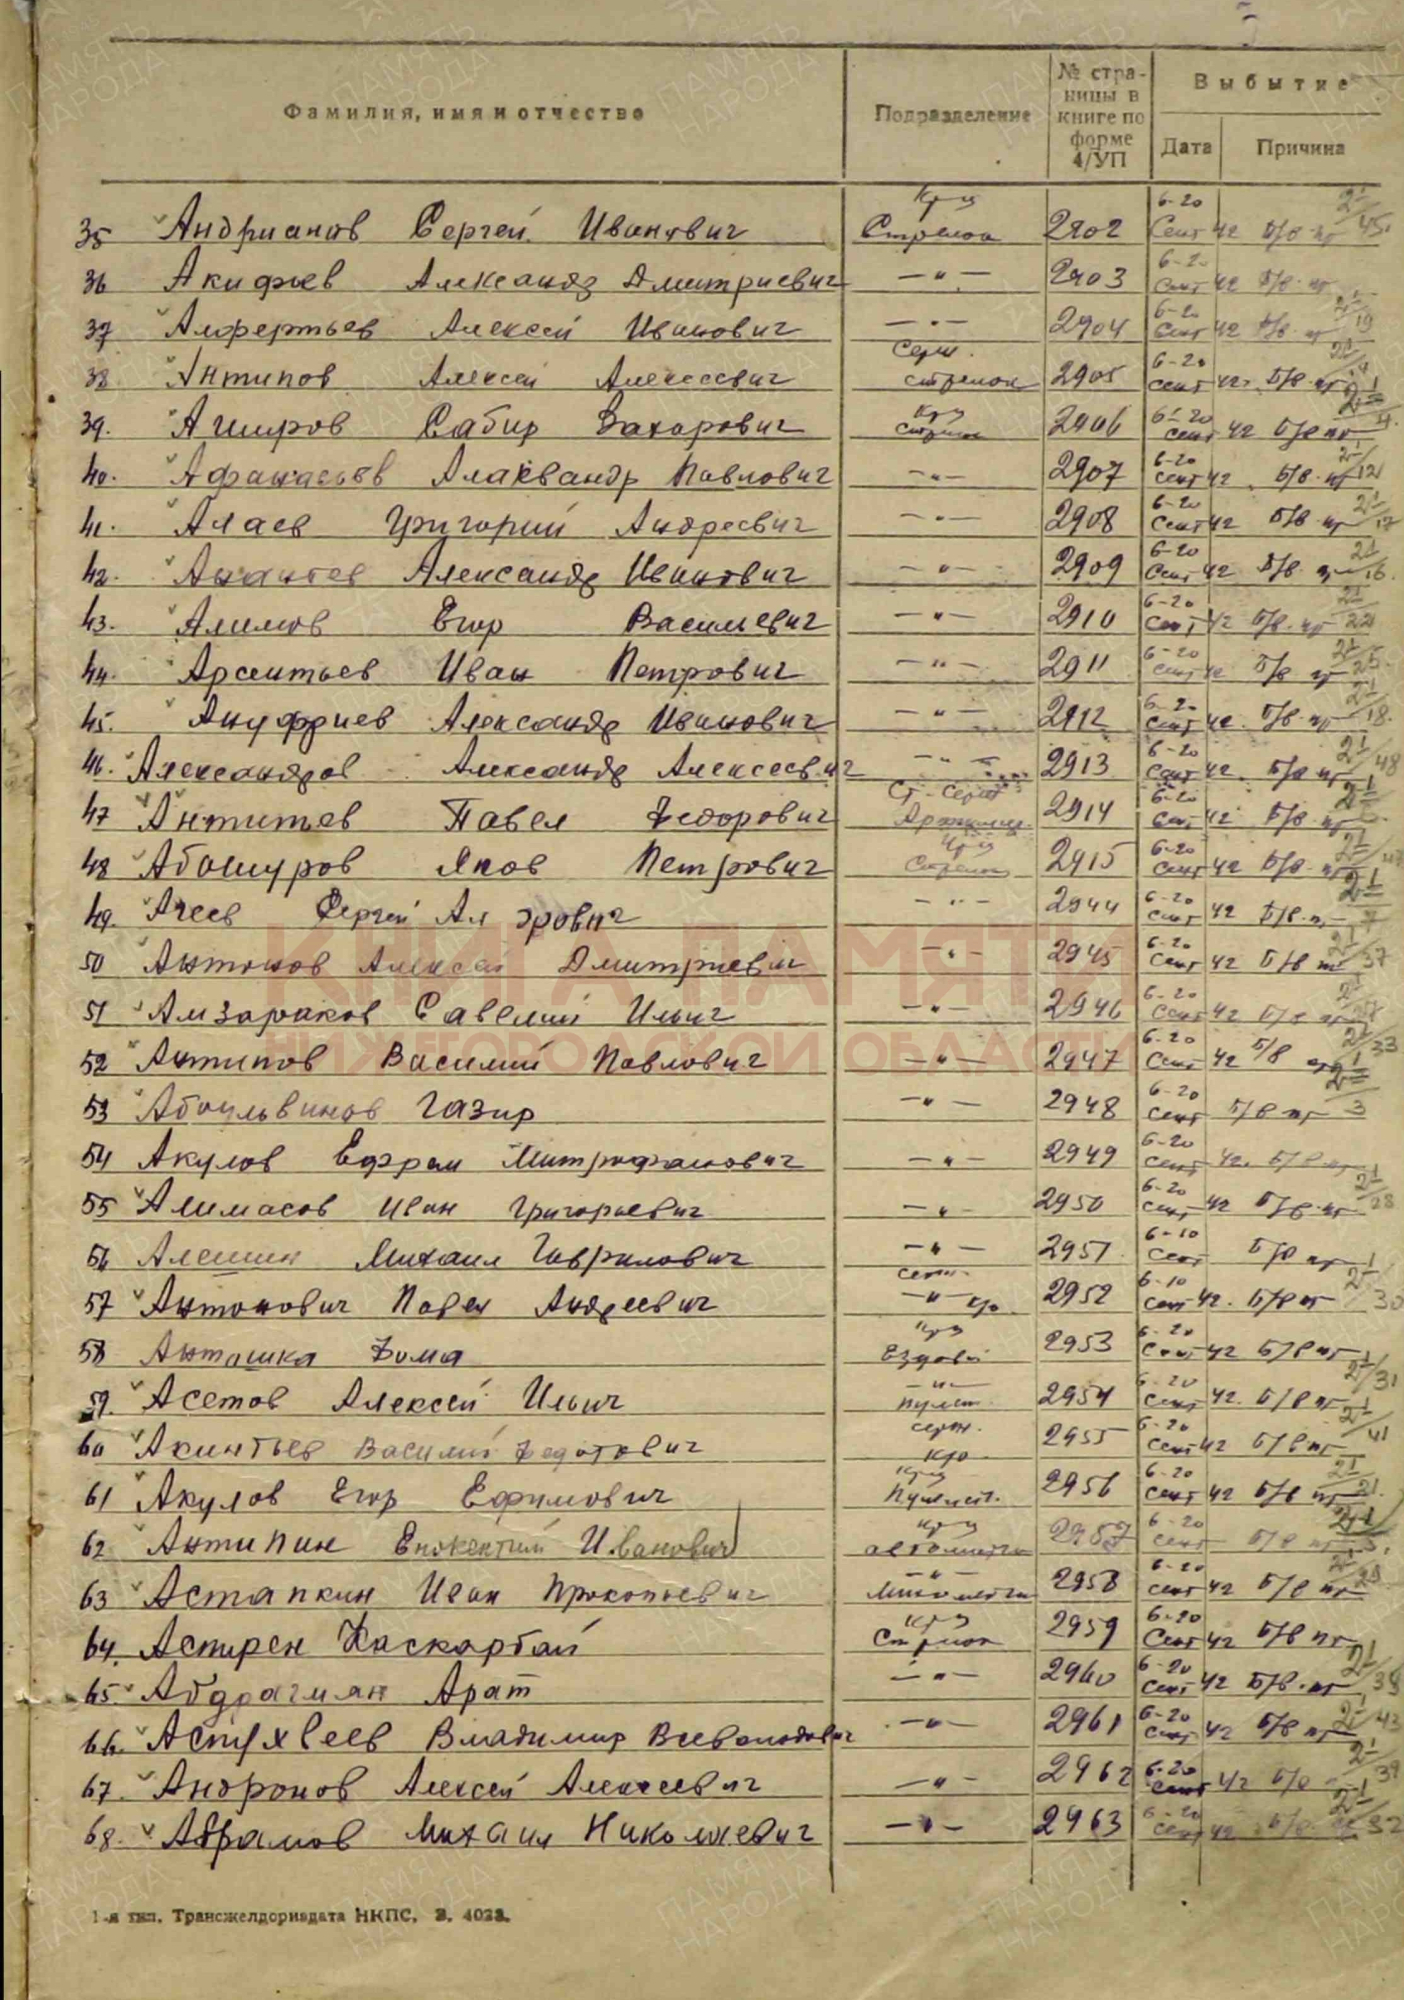 Фамилия, имя и отчество Подразделение № страницы в книге по форме 4/УП Выбытие
Дата Причина
35 Андрианов Сергей Иванович Кр-ц Стрелок 2902 6-20 Сент 42 Б/в-пт
36 Акифьев Александр Дмитриевич —"— 2903 6-20 Сент 42 Б/в-пт
37 Алферьтьев Алексей Иванович —"— 2904 6-20 Сент 42 Б/в-пт
38 Антипов Алексей Алексеевич Серж. стрелок 2905 6-20 Сент 42 Б/в-пт
39. Аширов Сабир Захарович Кр-ц стрелок 2906 6-20 Сент 42 Б/в пт
40. Афанасьев Александр Павлович —"— 2907 6-20 Сент 42 Б/в-пт
41. Алаев Григорий Андреевич —"— 2908 6-20 Сент 42 Б/в-пт
42. Александр Иванович —"— 2909 6-20 Сент 42 Б/в
43. Алимов Егор Васильевич —"— 2910 6-20 Сент 42 Б/в-пт
44. Арсентьев Иван Петрович —"— 2911 6-20 Сент 42 Б/в пт
45. Ануфриев Александр Иванович —"— 2912 6-20 Сент 42. Б/в-пт
46. Александров Александр Алексеевич —"— 2913 6-20 Сент 42. Б/в пт
47 Павел Федорович Ст-серж 2914 6-20 Сент 42 Б/в-пт
48 Абошуров Яков Петрович Кр-ц Стрелок 2915 6-20 Сент 42 Б/в-пт
49. Агеев Сергей —"— 2944 6-20 Сент 42 Б/в-пт
50 Антонов Алексей Дмитриевич —"— 2945 6-20 Сент 42 Б/в пт
51 Амзораков Савелий Ильич —"— 2946 6-20 Сент 42 Б/в пт
52 Антипов Василий Павлович —"— 2947 6-20 Сент 42 Б/в
53 Газир —"— 2948 6-20 Сент Б/в пт
54 Акулов Ефрем Митрофанович —"— 2949 6-20 Сент 42. Б/в пт
55 Алимасов Иван Григорьевич —"— 2950 6-20 Сент 42 Б/в-пт
56 Алешин Михаил Гаврилович —"— 2951 6-10 Сент Б/в пт
57 Антонович Павел Андреевич серж. —"— 2952 6-10 Сент 42. Б/в пт
58 Антошка Фома Кр-ц Ездовой 2953 6-20 Сент 42 Б/в пт
59. Асетов Алексей Ильич —"— пулем. 2954 6-20 Сент 42. Б/в пт
60 Акинтьев Василий Федотович серж. 2955 6-20 Сент 42 Б/в пт
61 Акулов Егор Ефимович Кр-ц Пулемет. 2956 6-20 Сент 42 Б/в пт
62 Антипин Енокентий Иванович Кр-ц автоматчик 2957 6-20 Сент Б/в пт
63 Астапкин Иван Прокопьевич —"— Минометчик 2958 6-20 Сент 42 Б/в пт
64. Аспирен Каскарбай Кр-ц Стрелок 2959 6-20 Сент 42 Б/в пт
65. Абдрагман Арат —"— 2960 6-20 Сент 42 Б/в-пт
66. Владимир Всеволодович —"— 2961 6-20 Сент 42 Б/в пт
67. Андронов Алексей Алексеевич —"— 2962 6-20 Сент 42 Б/в
68. Абрамов Михаил Николаевич —"— 2963 6-20 Сент 42 Б/в
КНИГА ПАМЯТИ
НИЖЕГОРОДСКОЙ ОБЛАСТИ
1-я тип. Трансжелдориздата НКПС. З. 4023.